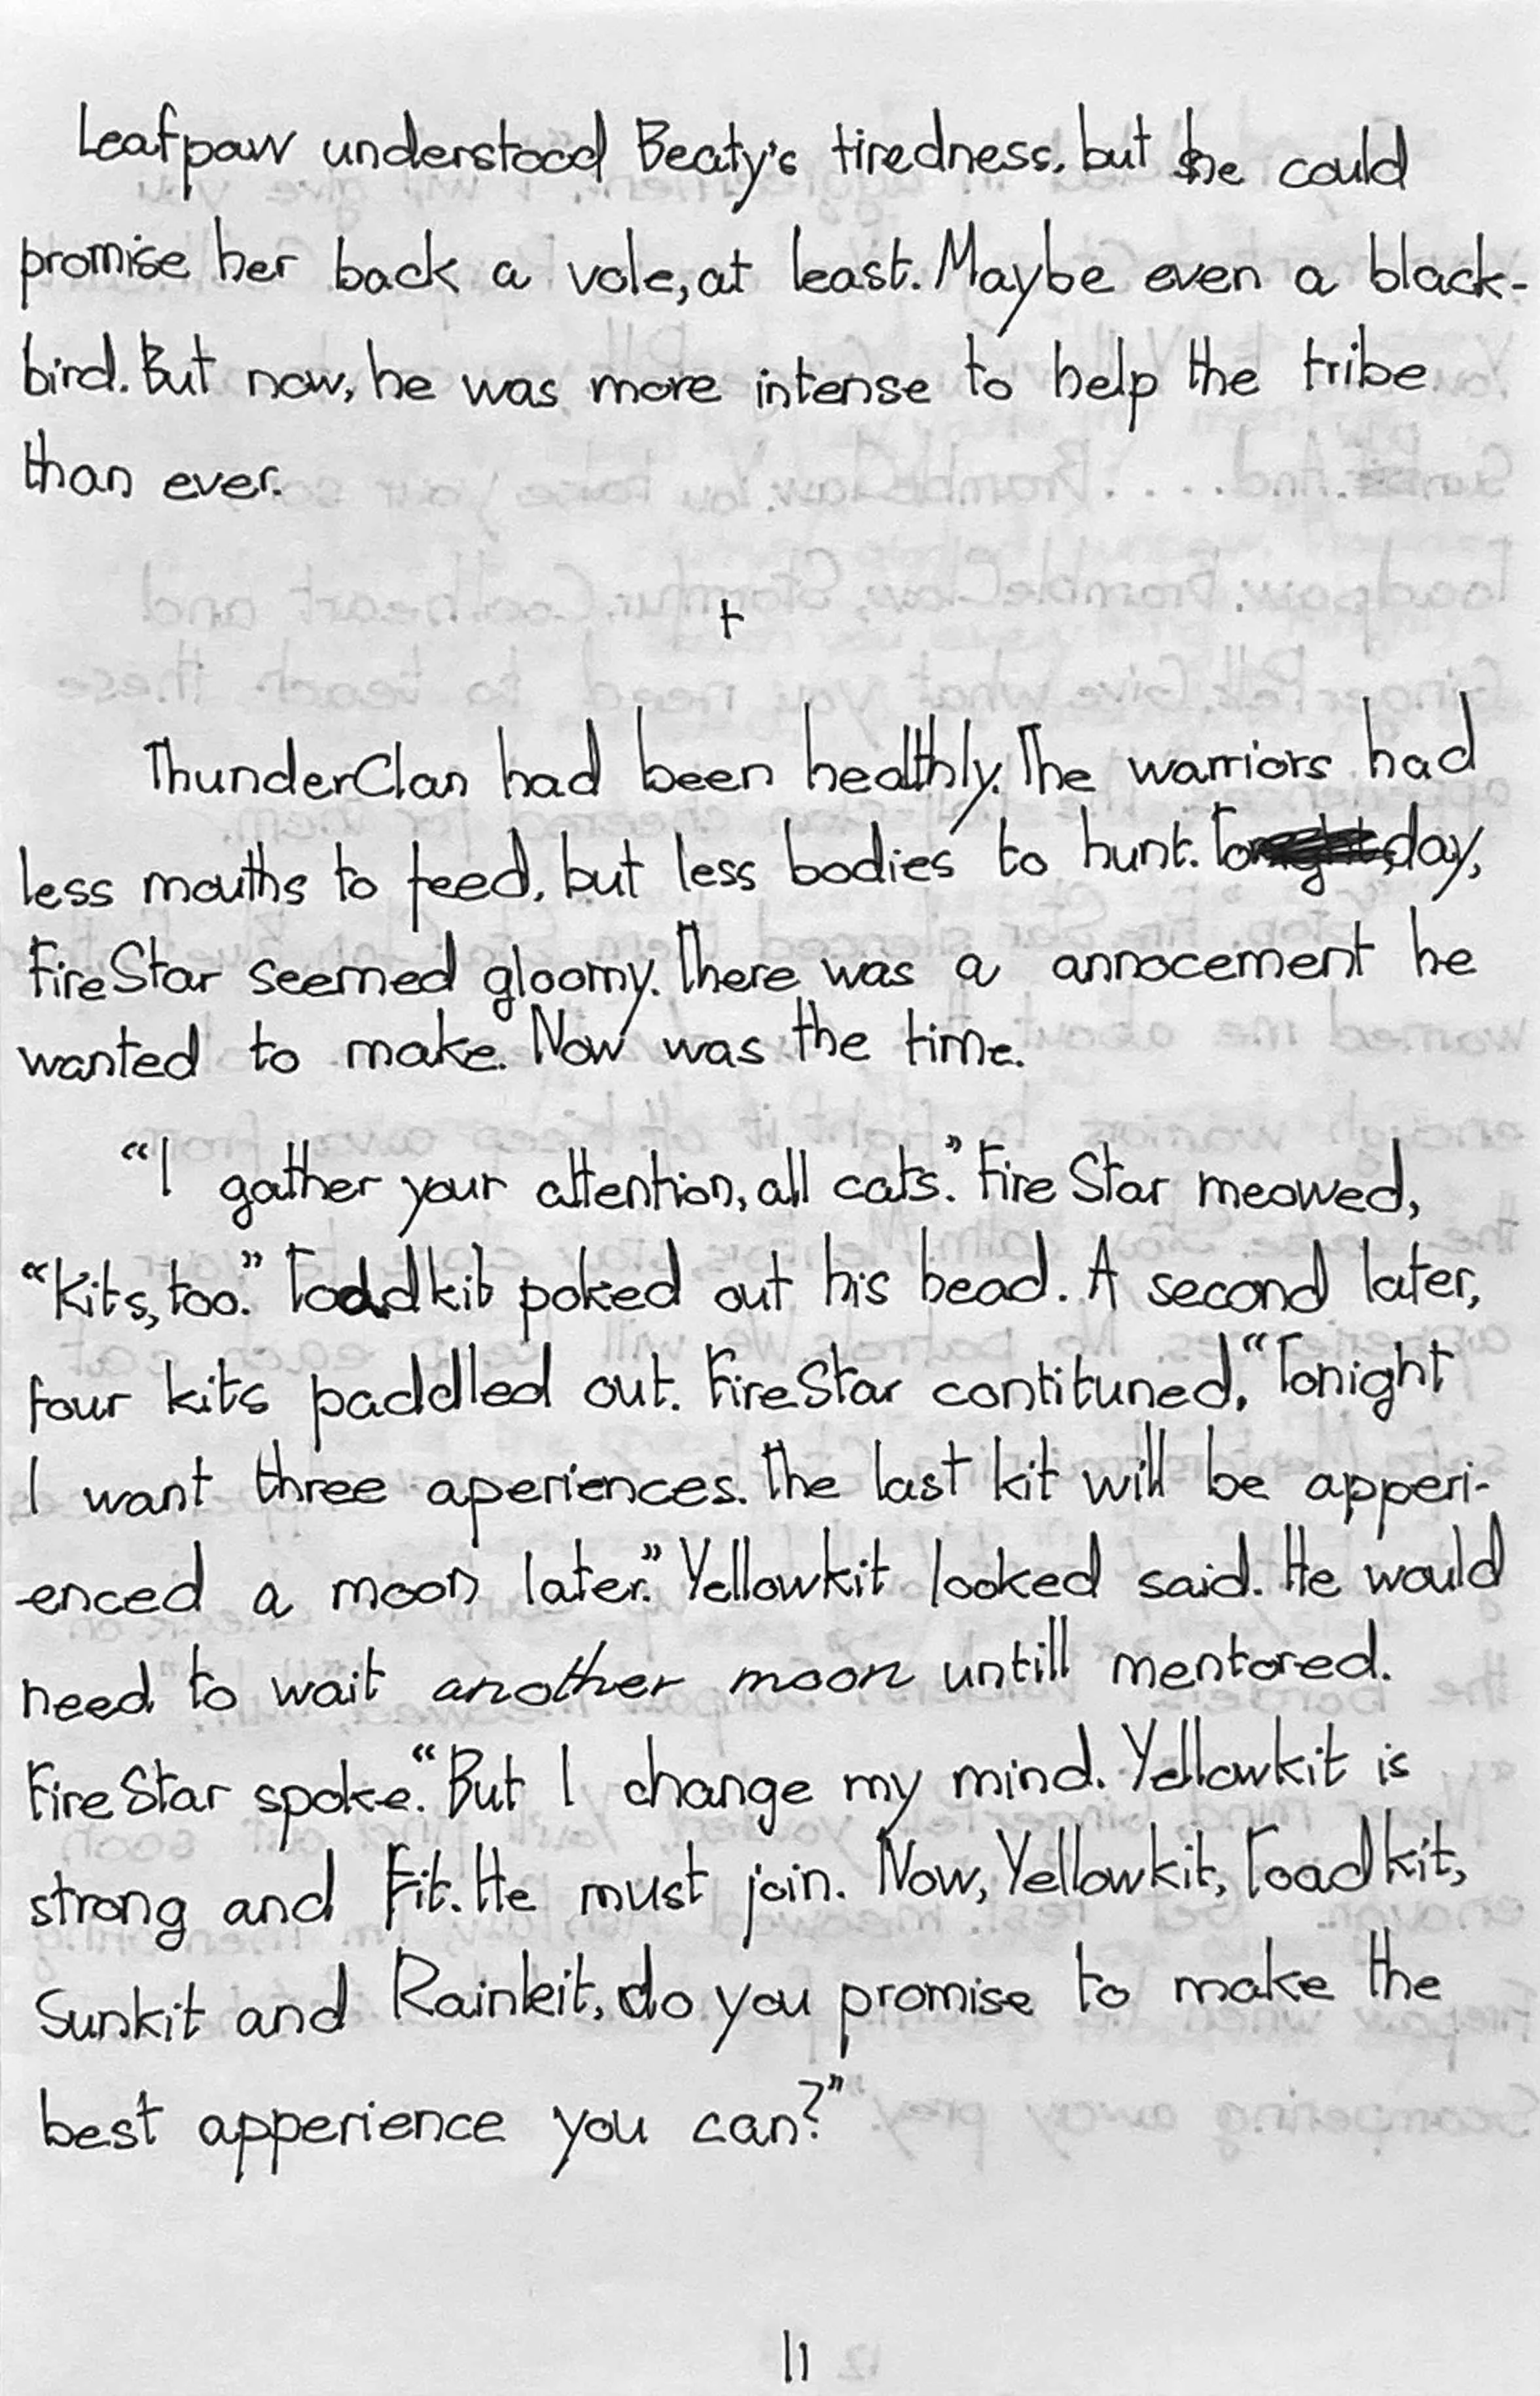 Leafpaw understood Beaty's tiredness, but he could
promise her back a vole, at least. Maybe even a black-
bird. But now, he was more intense to help the tribe
than ever.
+
ThunderClan had been healthly. The warriors had
less mouths to feed, but less bodies to hunt. Today,
FireStar seemed gloomy. There was a annocement he
wanted to make. Now was the time.
"I gather your attention, all cats." FireStar meowed,
"Kits, too." Toadkit poked out his head. A second later,
four kits paddled out. FireStar contituned, "Tonight
I want three aperiences. The last kit will be apperi-
enced a moon later." Yellowkit looked said. He would
need to wait another moon untill mentored.
FireStar spoke. "But I change my mind. Yellowkit is
strong and Fit. He must join. Now, Yellowkit, Toadkit,
Sunkit and Rainkit, do you promise to make the
best apperience you can?"
11